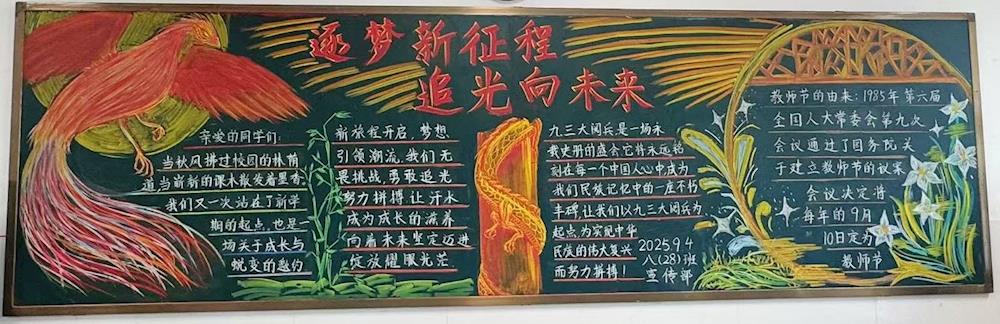 逐梦新征程
追光向未来
亲爱的同学们:
当秋风拂过校园的林荫
道当崭新的课本散发着墨香
我们又一次站在了新学
期的起点,也是一
场关于成长与
蜕变的邀约
新旅程开启,梦想
引领潮流,我们无
畏挑战,勇敢追光
努力拼搏让汗水
成为成长的滋养
向着未来坚定迈进
绽放耀眼光芒
九三大阅兵是一场永
载史册的盛会它将永远铭
刻在每一个中国人心中成为
我们民族记忆中的一座不朽
丰碑让我们以九三大阅兵为
起点为实现中华
民族的伟大复兴
而努力拼搏!
2025.9.4
八(28)班
宣传部
教师节的由来:1985年第六届
全国人大常委会第九次
会议通过了国务院关
于建立教师节的议案
会议决定将
每年的9月
10日定为
教师节